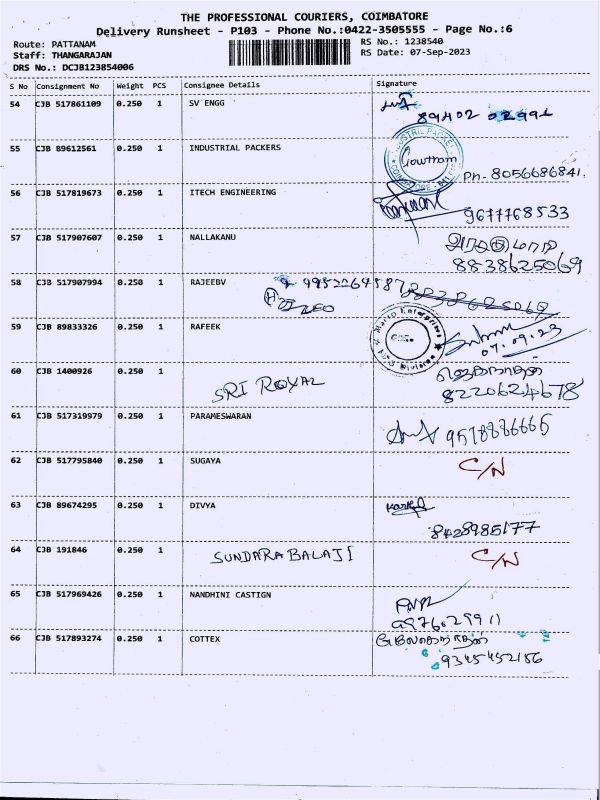 THE PROFESSIONAL COURIERS, COIMBATORE
Delivery Runsheet - P103 - Phone No.:0422-3505555 - Page No.:6
Route: PATTANAM
Staff: THANGARAJAN
DRS No.: DCJB123854006
RS No.: 1238540
RS Date: 07-Sep-2023
S No Consignment No Weight PCS Consignee Details Signature
54 CJB 517861109 0.250 1 SV ENGG
89402 02991
55 CJB 89612561 0.250 1 INDUSTRIAL PACKERS
Gowtham
Ph- 8056686841.
56 CJB 517819673 0.250 1 ITECH ENGINEERING
9677768533
57 CJB 517907607 0.250 1 NALLAKANU
8838625069
58 CJB 517907994 0.250 1 RAJEEBV
8838625069
59 CJB 89833326 0.250 1 RAFEEK
07.09.23
60 CJB 1400926 0.250 1 SRI ROYAL
8220624678
61 CJB 517319979 0.250 1 PARAMESWARAN
62 CJB 517795840 0.250 1 SUGAYA
C/N
63 CJB 89674295 0.250 1 DIVYA
8428985177
64 CJB 191846 0.250 1 SUNDARA BALAJI
C/N
65 CJB 517969426 0.250 1 NANDHINI CASTIGN
66 CJB 517893274 0.250 1 COTTEX
9345452156